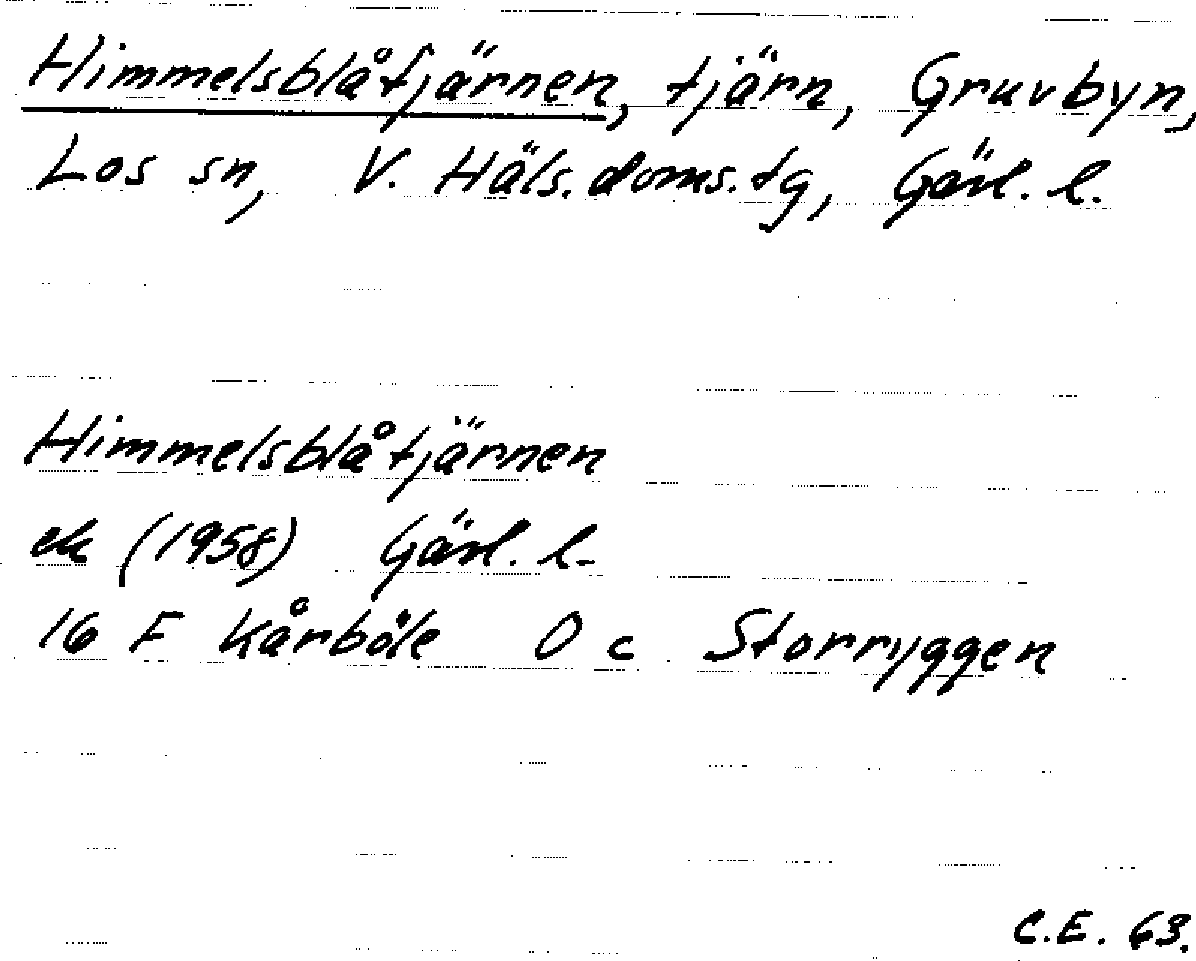 Himmelsblåtjärnen, tjärn, Gruvbyn,
Los sn, V. Häls. doms. tg, Gävl. l.
Himmelsblåtjärnen
ek (1958) Gävl. l.
16 F Kårböle O c Storryggen
C.E. 63.